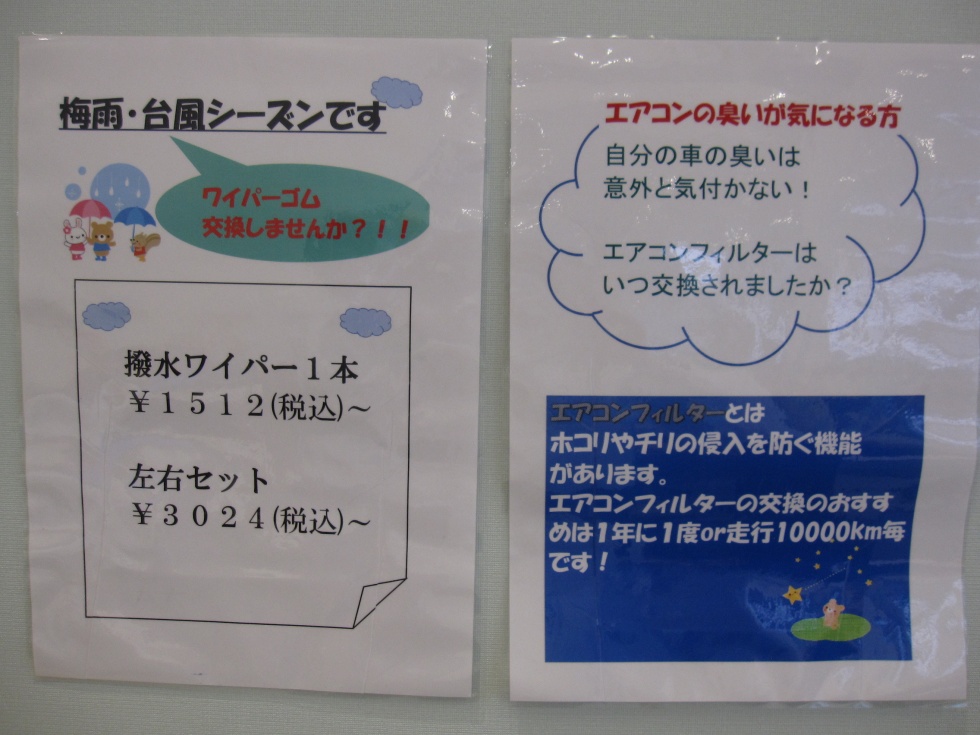 梅雨・台風シーズンです
ワイパーゴム
交換しませんか？！！
撥水ワイパー１本
￥１５１２(税込)～
左右セット
￥３０２４(税込)～
エアコンの臭いが気になる方
自分の車の臭いは
意外と気付かない！
エアコンフィルターは
いつ交換されましたか？
エアコンフィルターとは
ホコリやチリの侵入を防ぐ機能
があります。
エアコンフィルターの交換のおすす
めは１年に１度or走行10000km毎
です！